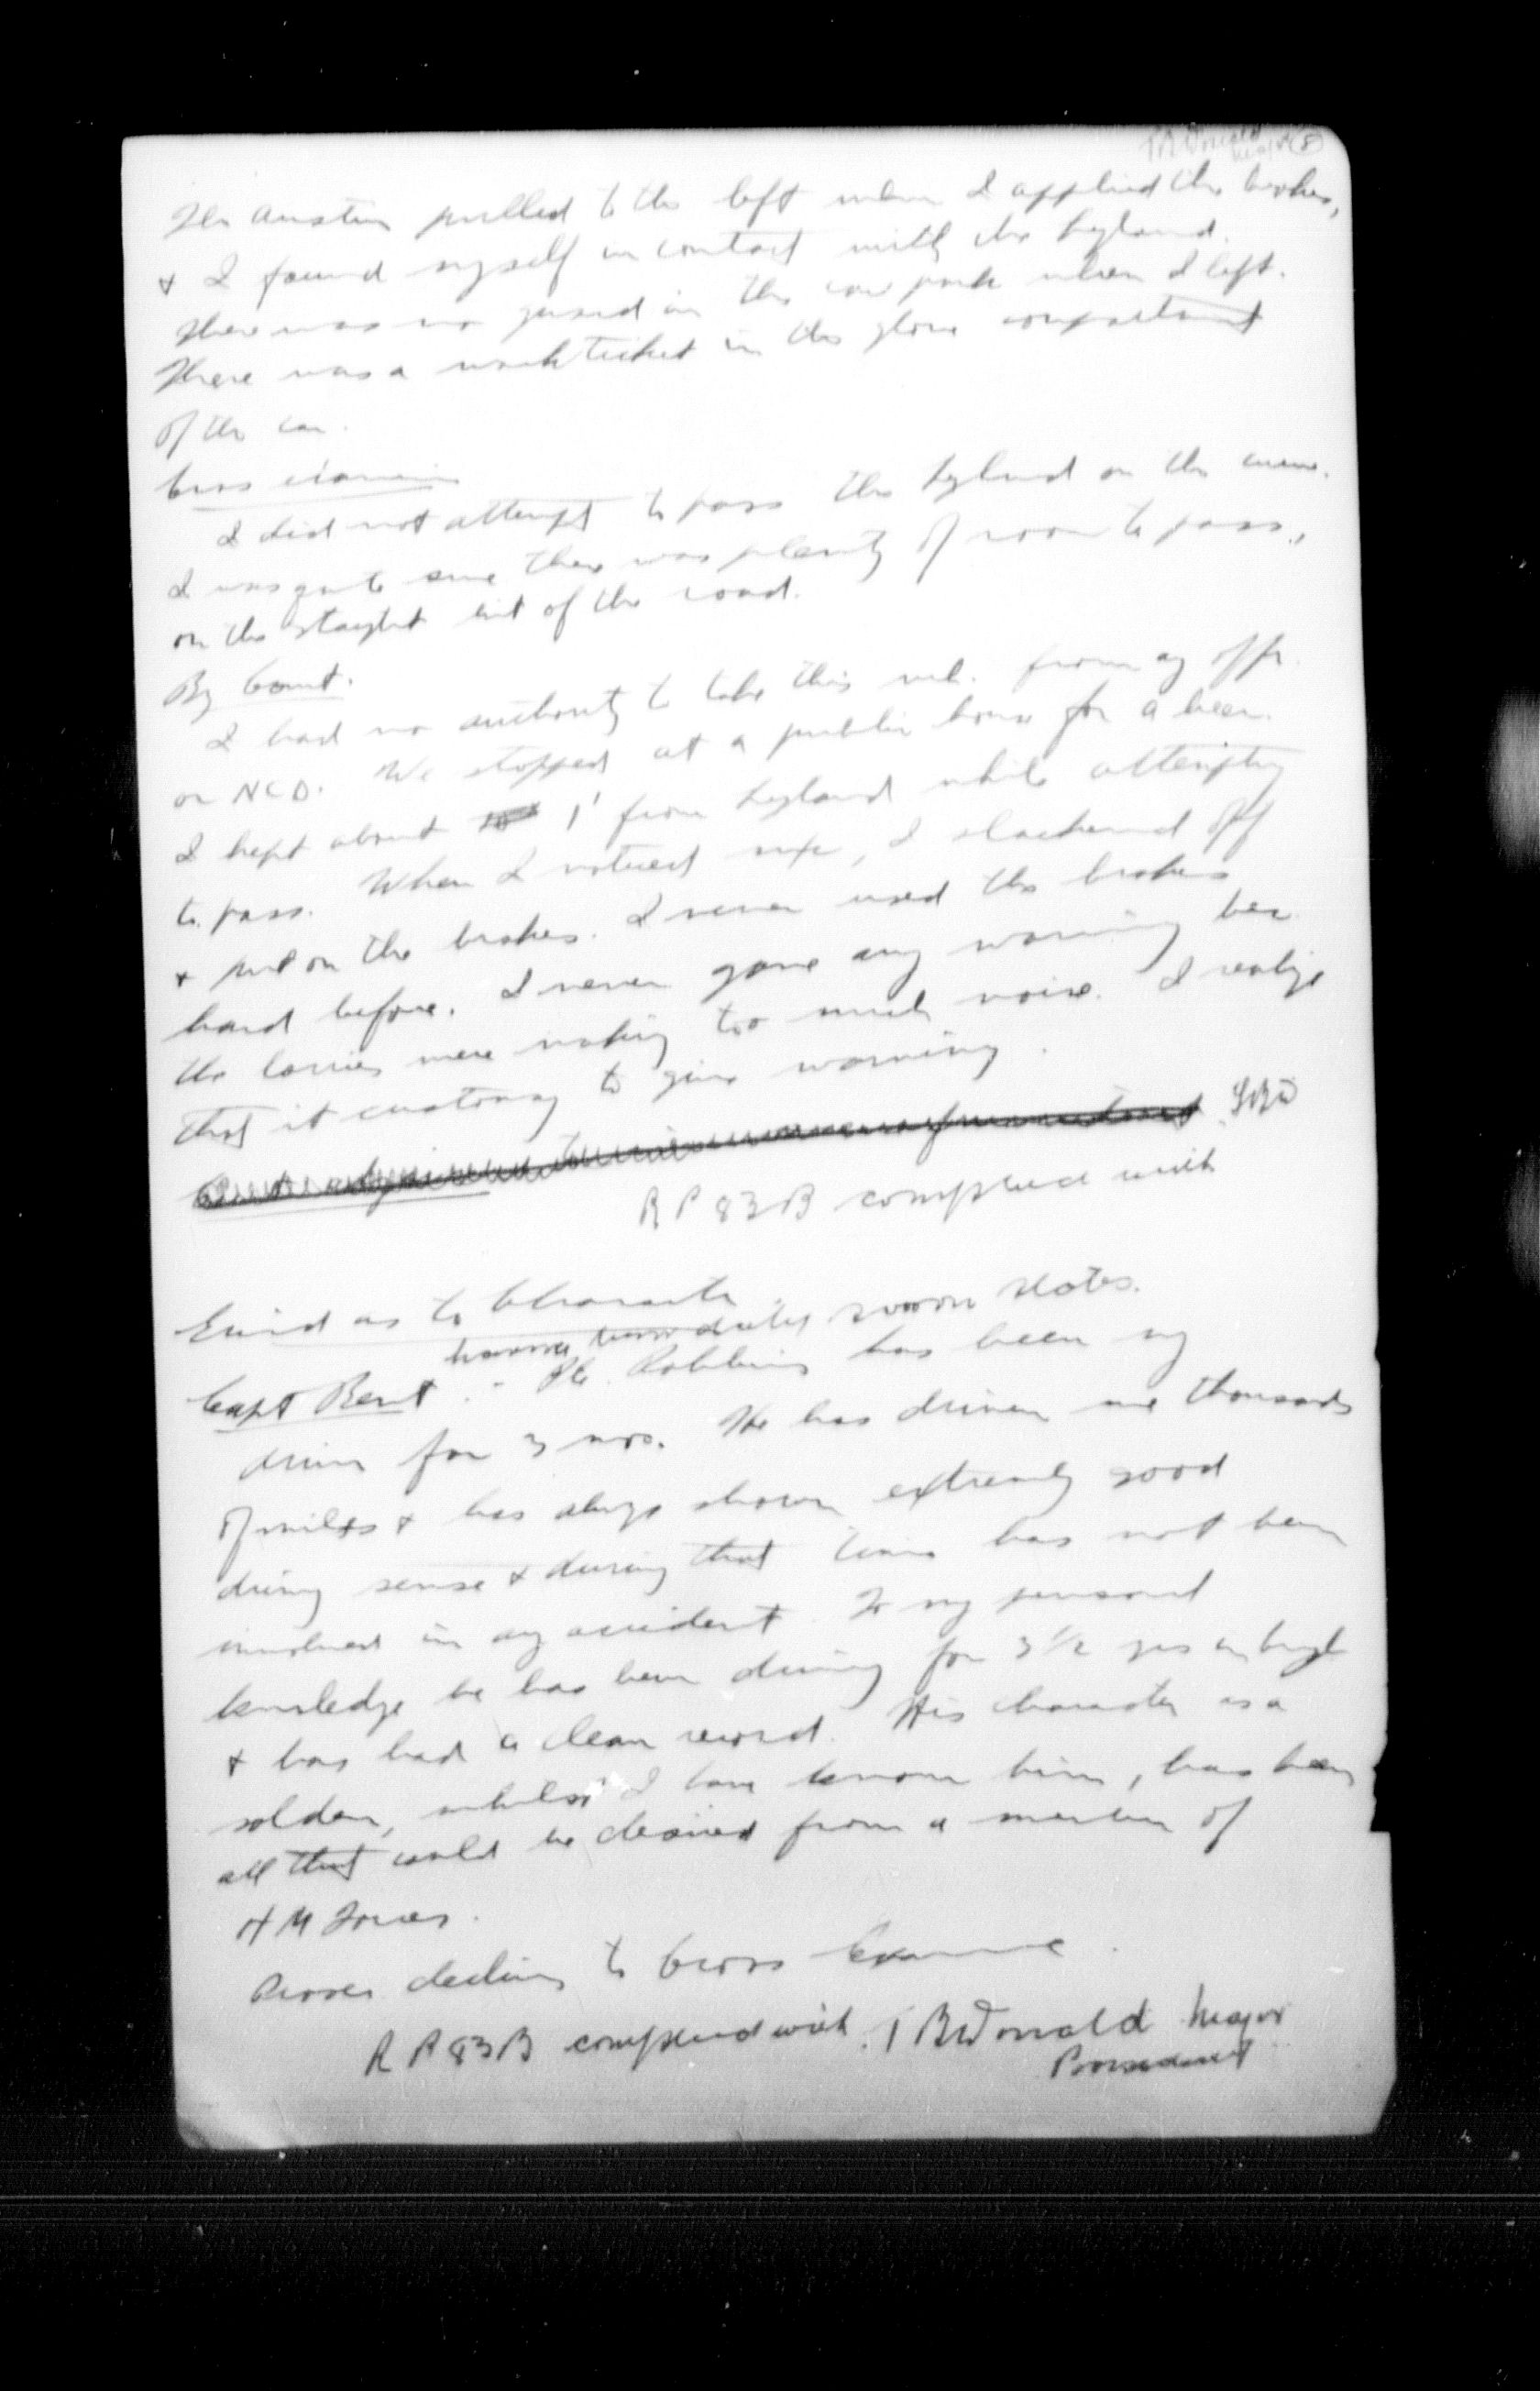 McDonald
Major (8)
The Austin pulled to the left when I applied the brakes,
& I found myself in contact with the leyland.
There was no guard in the car park when I left.
There was a work ticket in the glove compartment
of the car.
Cross
I did not attempt to pass the leyland on the curve.
I was quite sure there was plenty of room to pass,
on the staight bit of the road.
By Court.
I had no authority to take this veh. from any offr.
or NCO. We stopped at a public house for a beer.
I kept about 1' from leyland while attempting
to pass. When I noticed, I slackened off
& put on the brakes. I never used the brakes
hard before. I never gave any warning bec
the lorries were making too much noise. I realize
that it customary to give warning.
RP 83B complied with
Evid as to Character
having been duly sworn states.
Capt Bent :- Pte. Robbins has been my
driver for 3 mos. He has driven me thousands
of miles & has always shown extremely good
driving sense & during that time has not been
involved in any accident. To my personal
knowledge he has been driving for 3 1/2 yrs in
& has had a clean record. His character as a
soldier, whilst I have known him, has been
all that could be desired from a member of
H M Forces.
declines to Cross Examine.
R P 83B complied with. McDonald Major
President